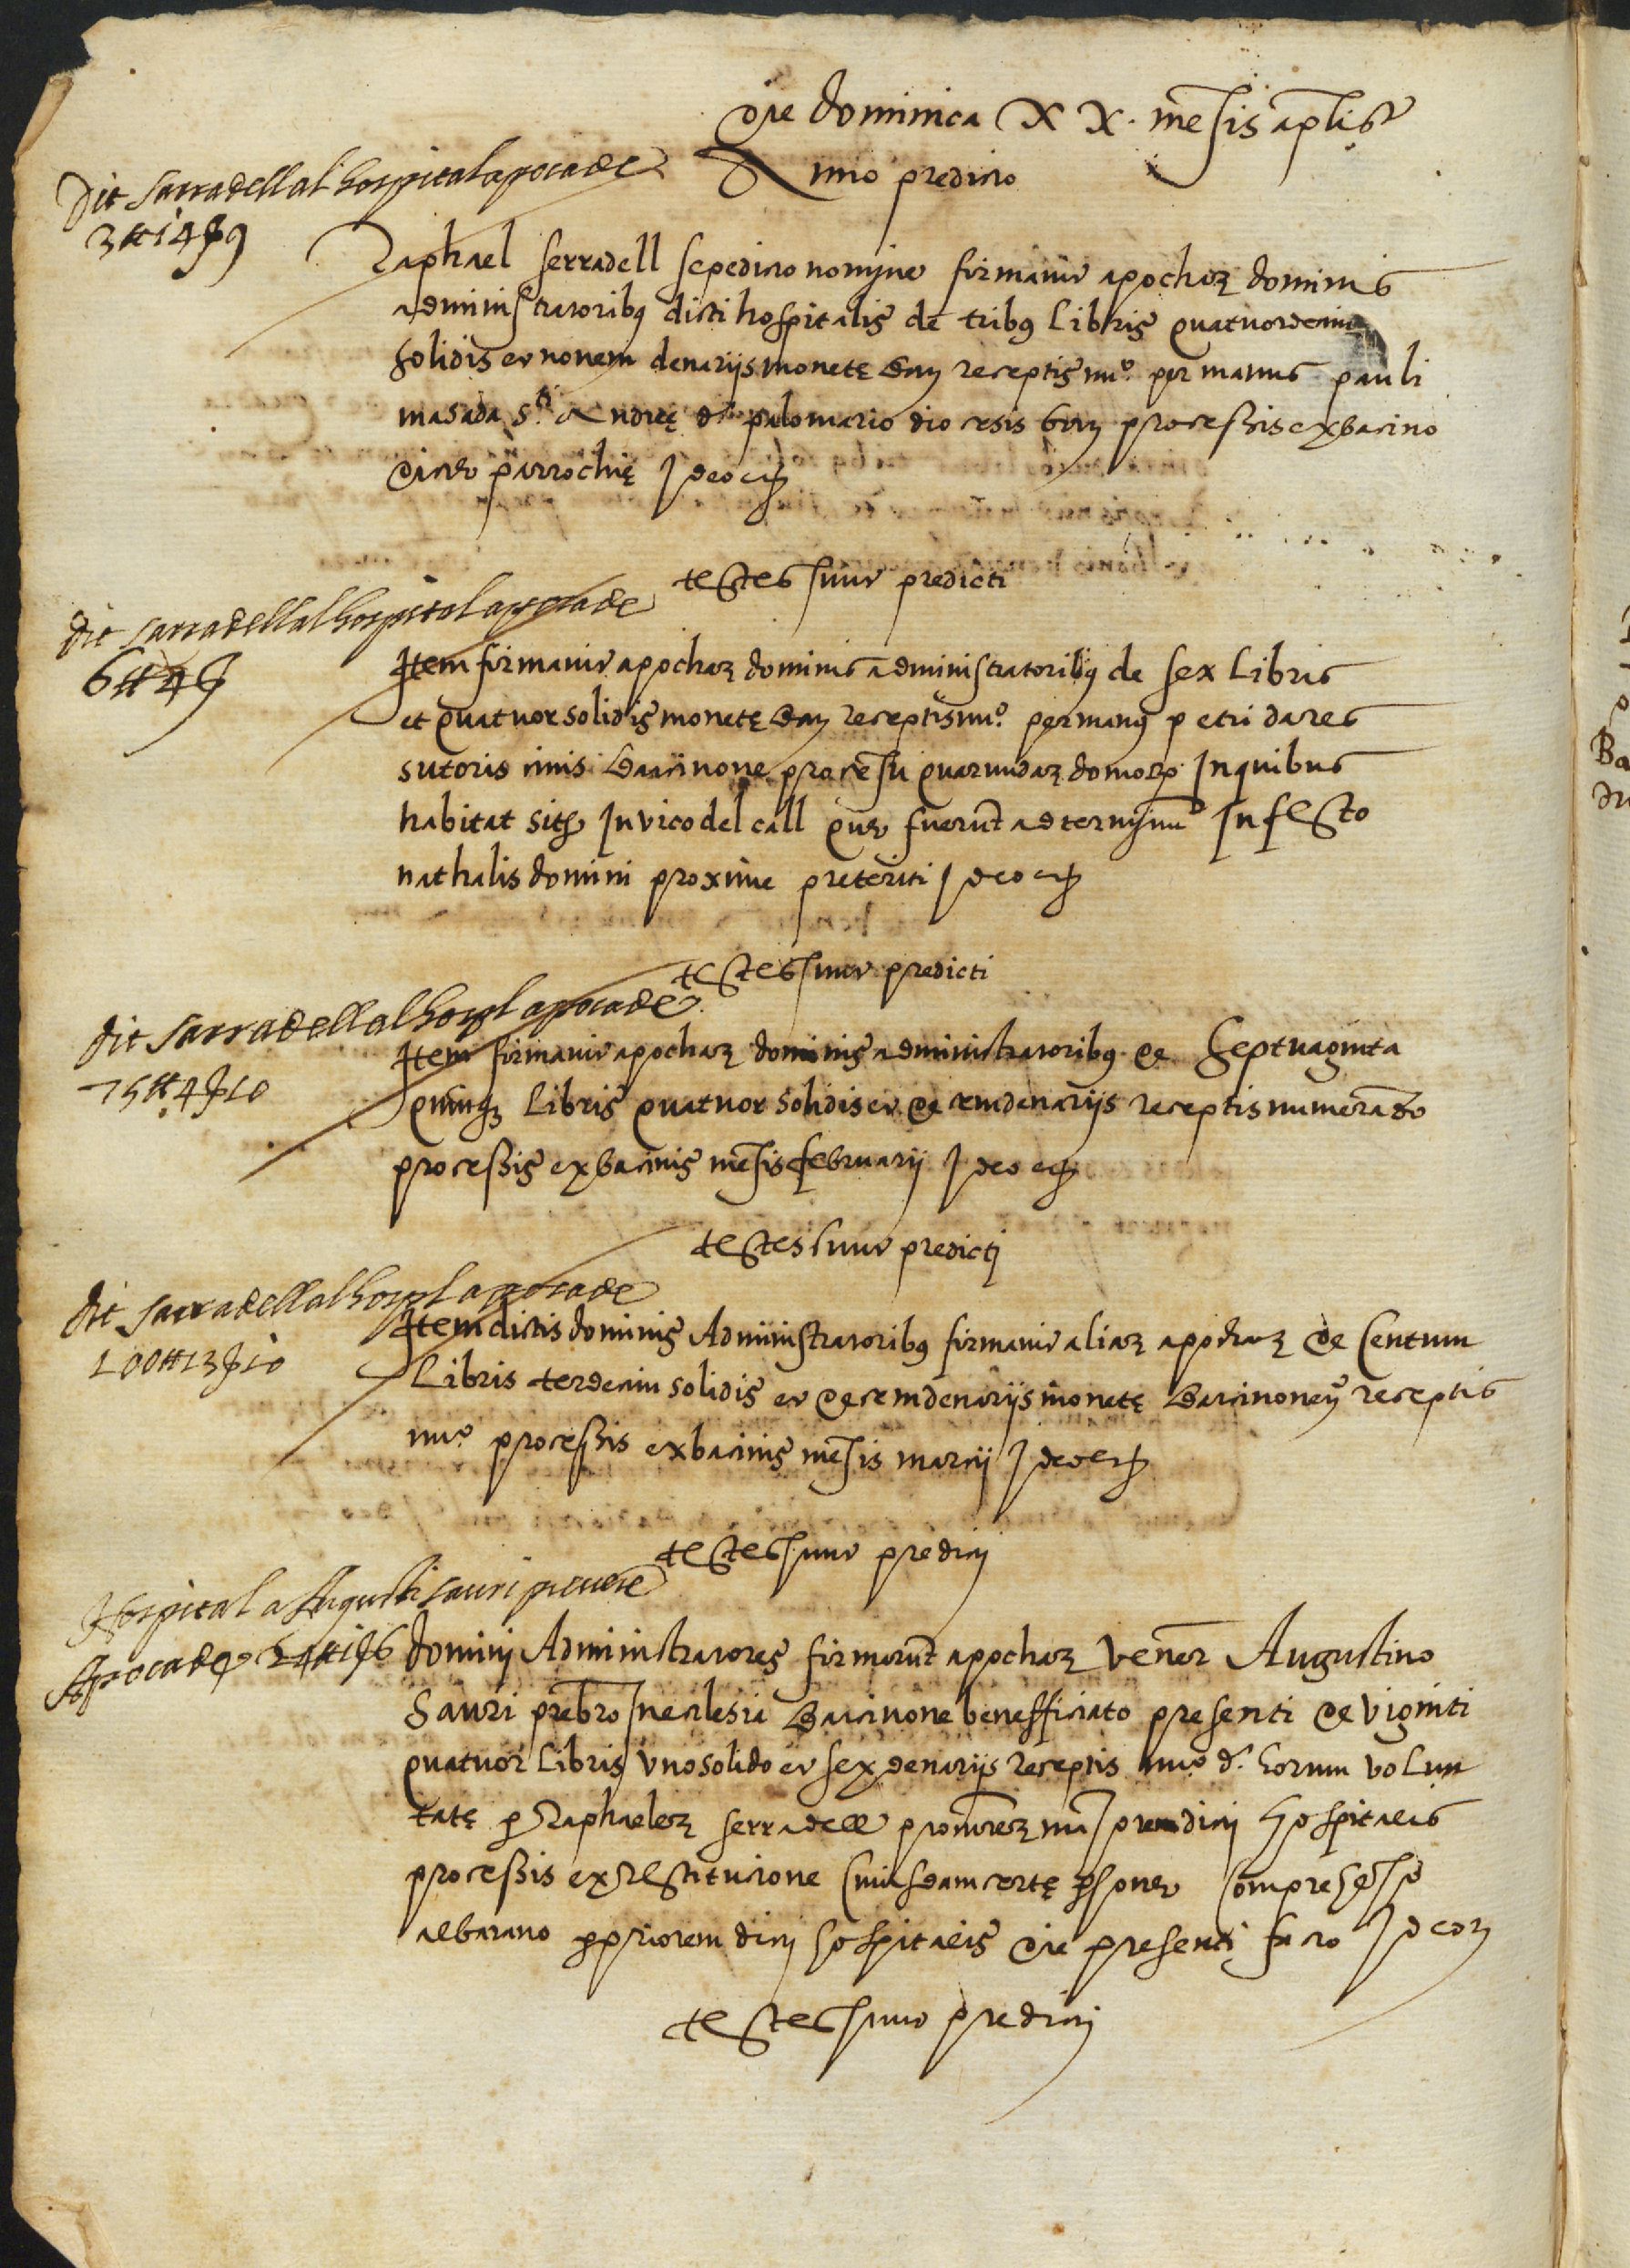 Die dominica XX. mensis aplis
Anno predicto
Dit sarradell al hospital apoca de
3 ll 14 s 9
Raphael serradell sepedicto nomine firmavit apocham dominis
administratoribus dicti hospitalis de tribus Libris quatuordecim
solidis et novem denariis monetę Bar receptis nuo. per manus pauli
masada sti Andreę de palomario diocesis bar processis ex bacino
dicte parrochię Ideo etc
testes sunt predicti
dit sarradell al hospital apoca de
6 ll 4 s
Item firmavit apocham dominis administratoribus de sex Libris
et quatuor solidis monetę Bar receptis nuo. per manus petri dares
sutoris civis Barcinone precesu quarumdam domorum In quibus
habitat sitis In vico del call que fuerunt ad terminum In festo
nathalis domini proxime preteriti Ideo etc
testes sunt predicti
dit sarradell al hospl apoca de
75 ll 4 s 10
Item firmavit apocham dominis administratoribus de Septuaginta
quinque Libris quatuor solidis et decem denariis receptis numerando
processis ex bacinis mensis februarii Ideo etc
testes sunt predicti
dit sarradell al hospl apoca de
100 ll 13 s 10
Item dictis dominis Administratoribus firmavit aliam apocham de Centum
Libris terdecim solidis et decem denariis monetę Barcinonen receptis
nuo processis ex bacinis mensis marcii Ideo etc
testes sunt predicti
Hospital a Augusti sauri prevere
Apoca de 24 ll 1 s 6
domini Administratores firmarunt apocham vener Augustino
Sauri prebro In eclesia Barcinone benefficiato presenti de viginti
quatuor Libris uno solido et sex denariis receptis nuo de horum volun
tatę per Raphaelem serradell procuratorem dicti Hospitalis
processis ex restitucione Cuiusdam certę persone
albarano per priorem dicti hospitalis die presenti facto Ideo etc
testes sunt predicti